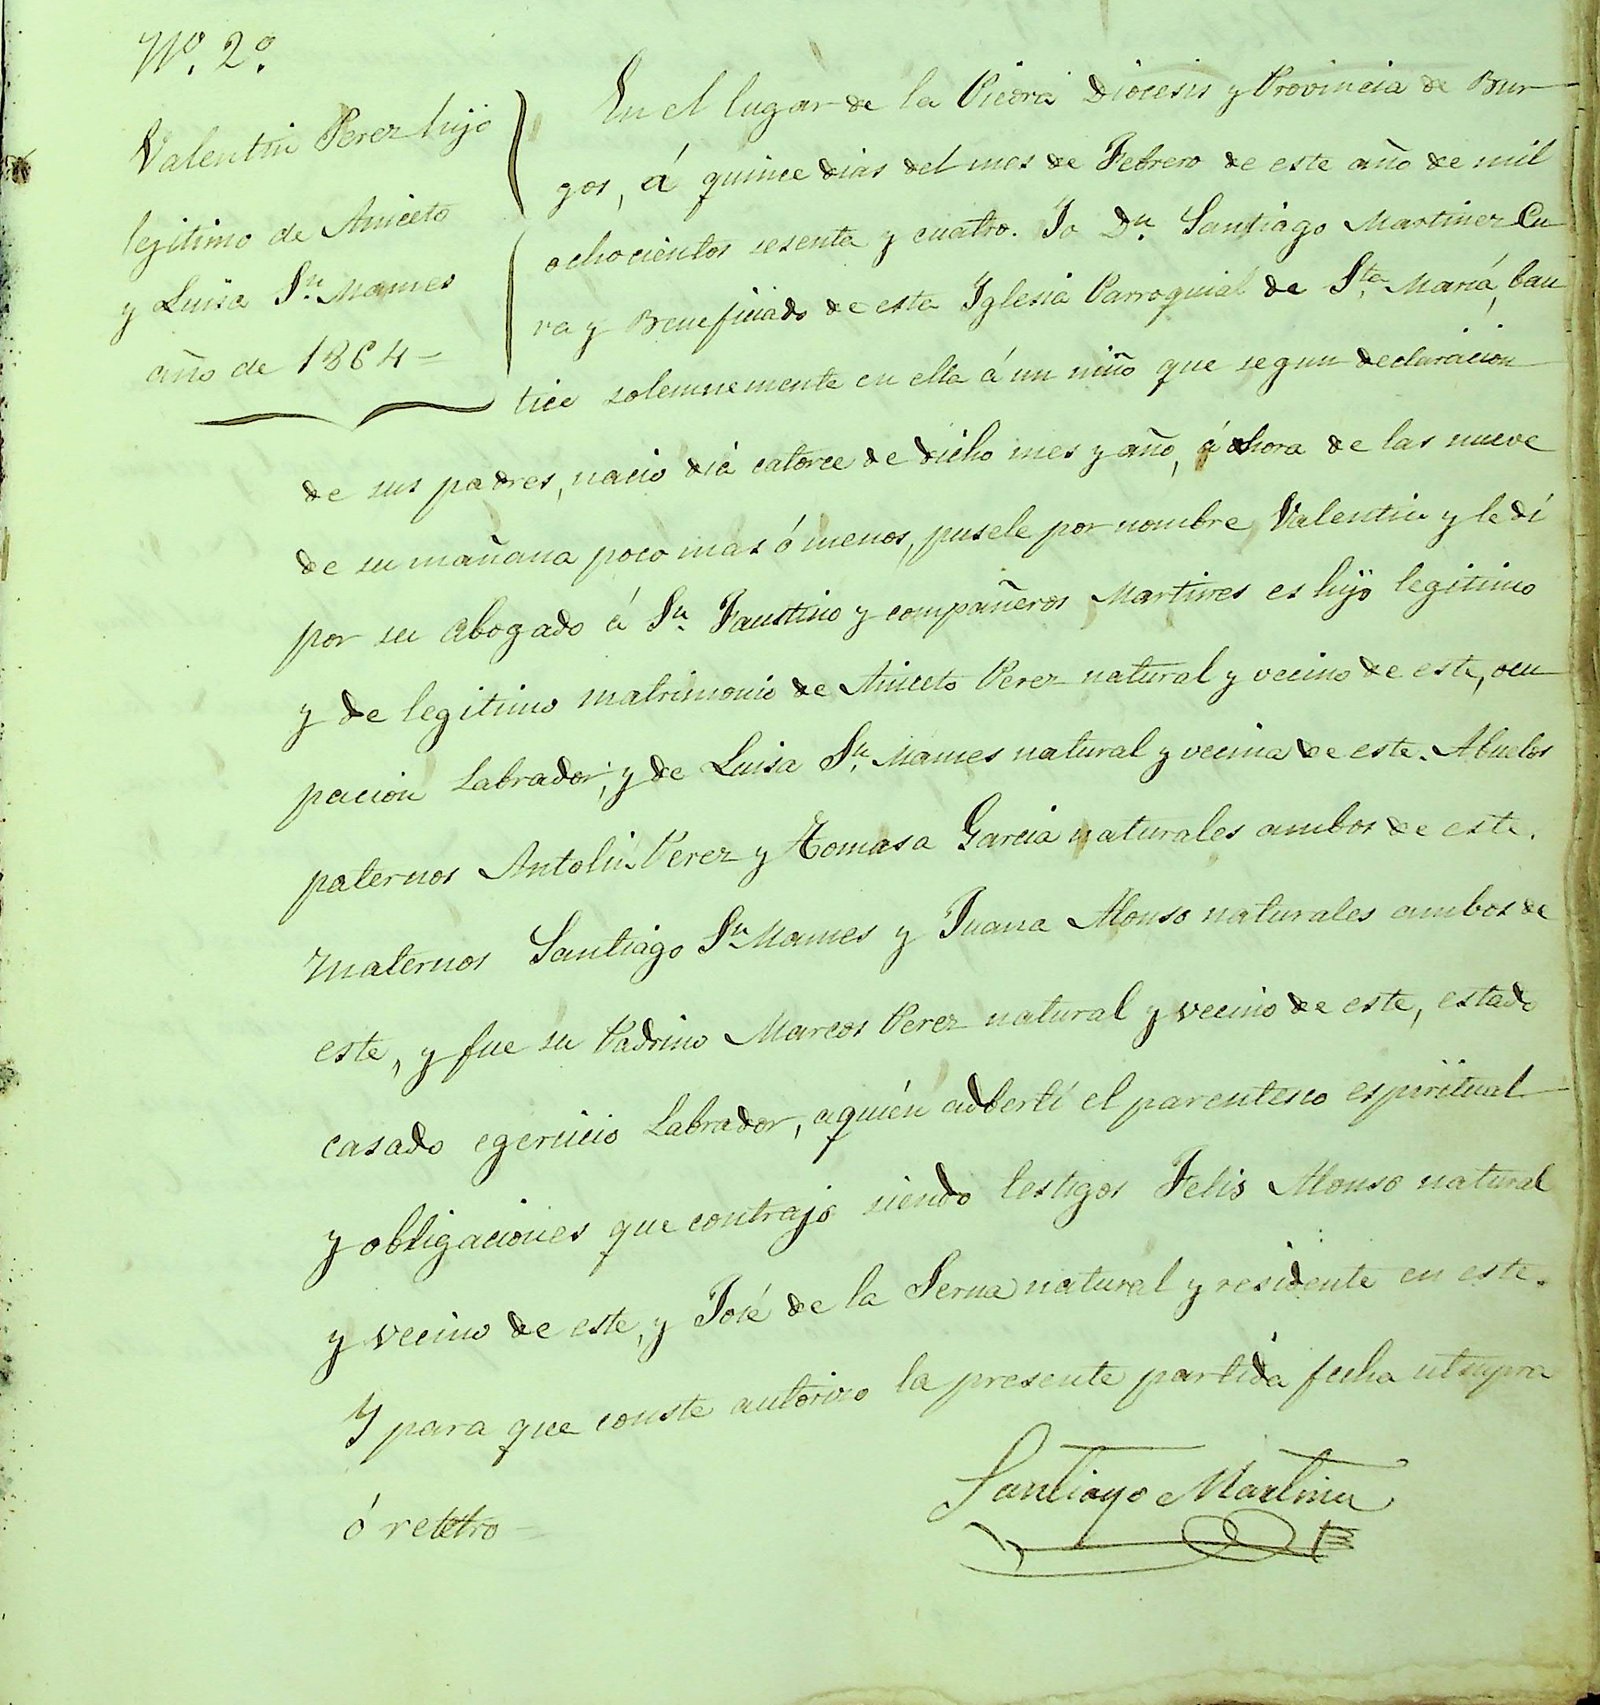 Nº. 2º.
Valentin Perez hijo
legitimo de Aniceto
y Luisa Sn. Mames
año de 1864 -
En el lugar de la Piedra Diocesis y Provincia de Bur
gos, á quince dias del mes de Febrero de este año de mil
ochocientos sesenta y cuatro. Yo Dn. Santiago Martinez Cu
ra y Beneficiado de esta Iglesia Parroquial de Sta. Maria, bau
tice solemnemente en ella á un niño que segun declaracion
de sus padres, nacio dia catorce de dicho mes y año, á hora de las nueve
de su mañana poco mas ó menos, pusele por nombre Valentin y le dí
por su abogado á Sn. Faustino y compañeros Martires es hijo legitimo
y de legitimo matrimonio de Aniceto Perez natural y vecino de este, ocu
pacion Labrador, y de Luisa Sn. Mames natural y vecina de este. Abuelos
paternos Antolin Perez y Tomasa Garcia naturales ambos de este.
Maternos Santiago Sn. Mames y Juana Alonso naturales ambos de
este, y fue su Padrino Marcos Perez natural y vecino de este, estado
casado egercicio Labrador, a quién adbertí el parentesco espiritual
y obligaciones que contrajo siendo testigos Felis Alonso natural
y vecino de este, y José de la Serna natural y residente en este.
Y para que conste autorizo la presente partida fecha utsupra
ó retetro -
Santiago Martinez